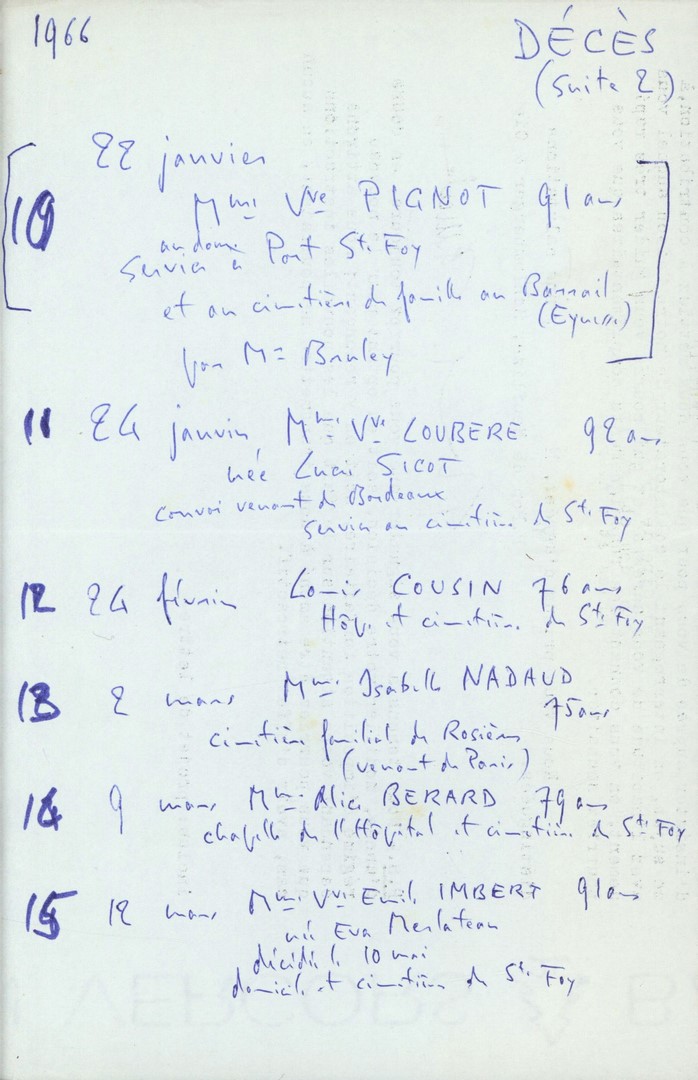 1966
DÉCÈS
(suite 2)
22 janvier
10 Mme Vve PIGNOT 91 ans
au dome
Service à Port Ste Foy
et au cimetière de famille au Barrail
(Eynesse)
par Me Bruley
11 24 janvier Mme Vve LOUBERE 92 ans
née Lucie SICOT
convoi venant de Bordeaux
service au cimetière de Ste Foy
12 24 février Louis COUSIN 76 ans
Hôp. et cimetière de Ste Foy
13 2 mars Mme Isabelle NADAUD
75 ans
cimetière familial de Rosières
(venant de Paris)
14 9 mars Mme Alice BERARD 79 ans
chapelle de l'Hôpital et cimetière de Ste Foy
15 12 mars Mme Vve Emile IMBERT 91 ans
née Eva Merlateau
décédée le 10 mai
domicile et cimetière de Ste Foy